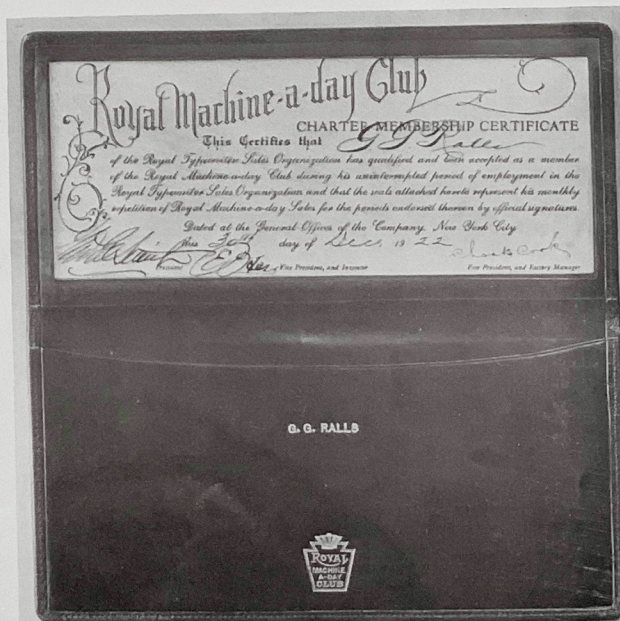 Royal Machine-a-day Club
CHARTER MEMBERSHIP CERTIFICATE
This Certifies that G G Ralls
of the Royal Typewriter Sales Organization has qualified and been accepted as a member
of the Royal Machine-a-day Club during his uninterrupted period of employment in the
Royal Typewriter Sales Organization and that the seals attached hereto represent his monthly
repetition of Royal Machine-a-day Sales for the periods endorsed thereon by official signatures.
Dated at the General Offices of the Company, New York City
this 30th day of Dec, 1922
President
Vice President, and Inventor
Vice President, and Factory Manager
G. G. RALLS
ROYAL
MACHINE
A-DAY
CLUB